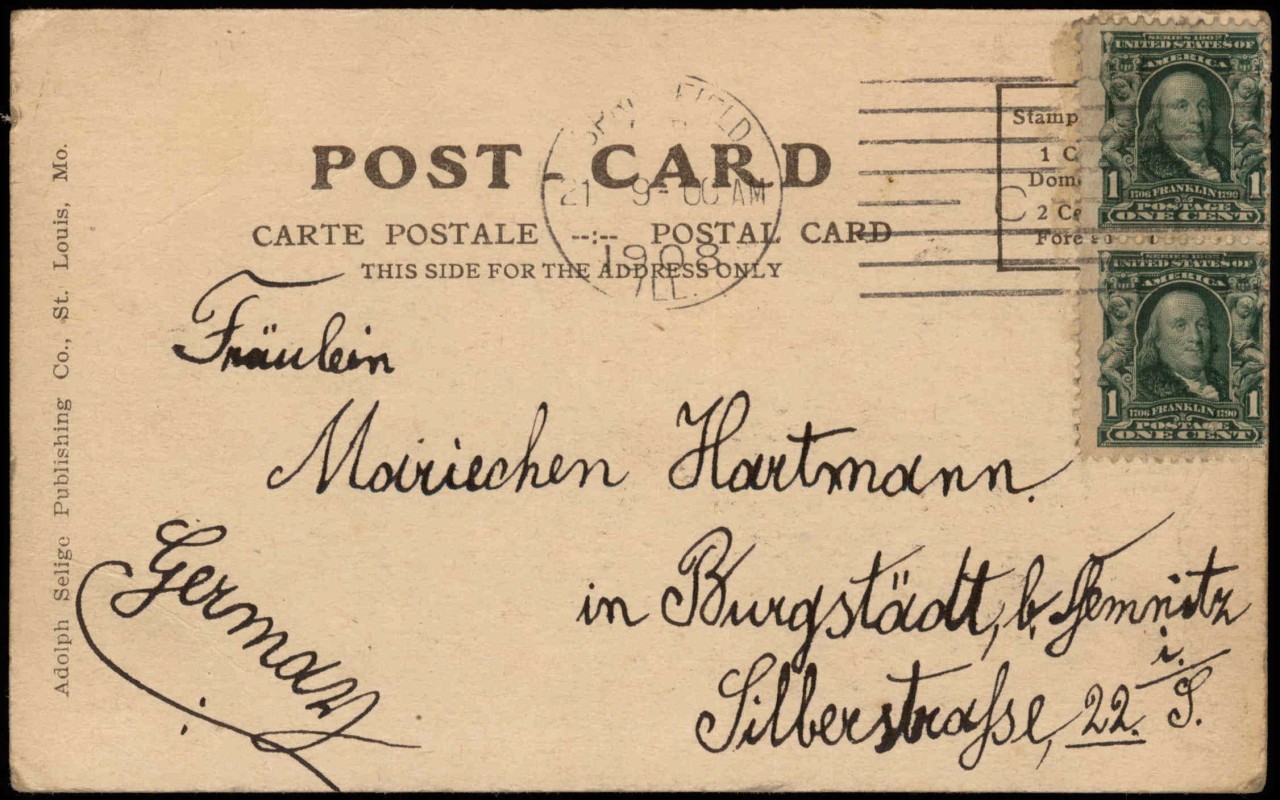 POST CARD
CARTE POSTALE --:-- POSTAL CARD
THIS SIDE FOR THE ADDRESS ONLY
Adolph Selige Publishing Co., St. Louis, Mo.
21 9-00 AM
1908
ILL.
Stamp
1 C
Dom
2 Ce
Fore
SERIES 1902
UNITED STATES OF
AMERICA
1 1706 FRANKLIN 1790 1
POSTAGE
ONE CENT
SERIES 1902
UNITED STATES OF
AMERICA
1 1706 FRANKLIN 1790 1
POSTAGE
ONE CENT
Fräulein
Mariechen Hartmann.
in Burgstädt, b. Chemnitz
i. S.
Silberstrasse, 22.
Germany